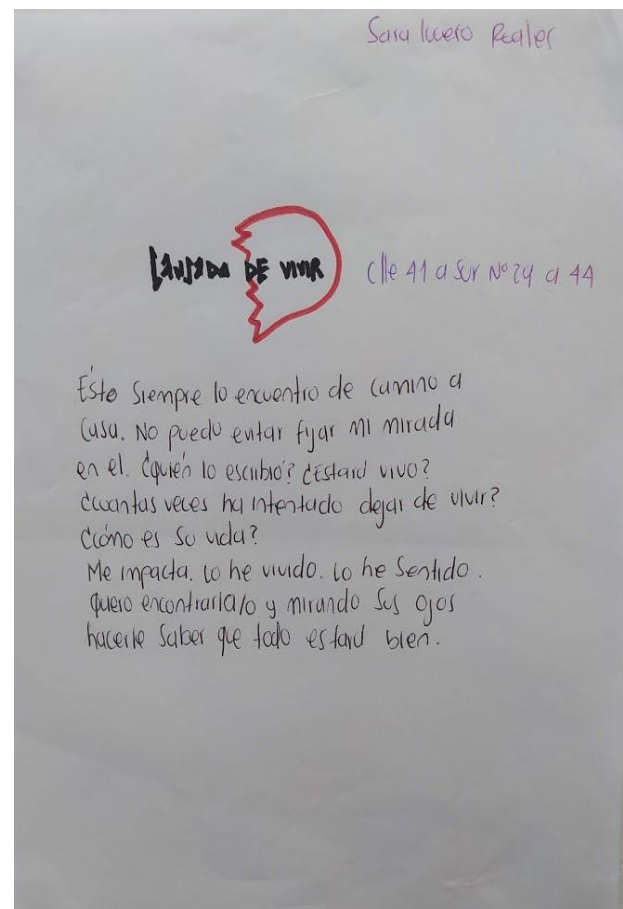 Sara lucero Reales
CANSADA DE VIVIR
Clle 41 a sur Nº 29 a 44
Éste siempre lo encuentro de camino a
casa. No puedo evitar fijar mi mirada
en el. ¿Quién lo escribió? ¿Estará vivo?
¿Cuantas veces ha intentado dejar de vivir?
¿Cómo es su vida?
Me impacta. Lo he vivido. Lo he sentido.
Quiero encontrarla/o y mirando sus ojos
hacerle saber que todo estará bien.